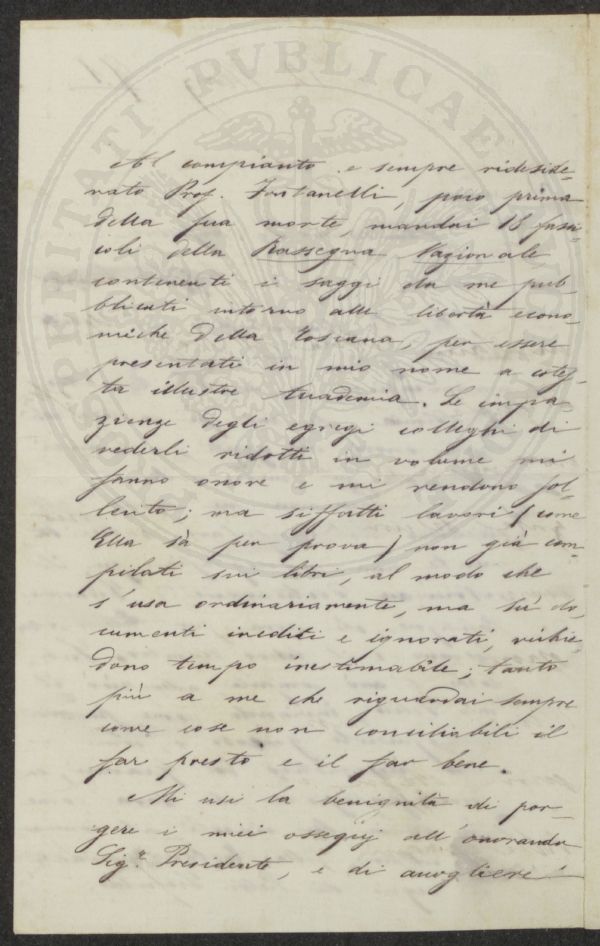 PVBLICAE
PROSPERITATI
Al compianto e sempre rideside-
rato Prof. Fontanelli, poco prima
della sua morte, mandai 18 fasci
coli della Rassegna Nazionale
contenenti i saggi da me pub-
blicati intorno alle libertà econo-
miche della Toscana, per essere
presentati in mio nome a cotes-
ta illustre Accademia. Le impa
zienze degli egregi colleghi di
vederli ridotti in volume mi
fanno onore e mi rendono sol-
lecito; ma siffatti lavori (come
Ella sà per prova) non già com-
pilati sui libri, al modo che
s'usa ordinariamente, ma sù do-
cumenti inediti e ignorati, richie-
dono tempo inestimabile; tanto
più a me che riguardai sempre
come cose non conciliabili il
far presto e il far bene.
Mi usi la benignità di por-
gere i miei ossequj all'onorando
Sigr. Presidente, e di accogliere